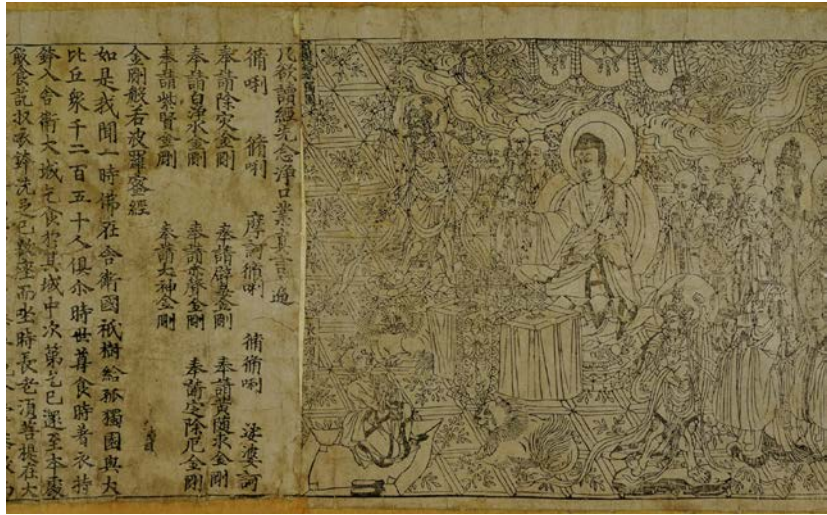 凡欲讀經先念淨口業真言遍
脩唎 脩唎 摩訶脩唎 脩脩唎 娑婆訶
奉請除灾金剛 奉請辟毒金剛 奉請黃隨求金剛
奉請白淨水金剛 奉請赤聲金剛 奉請定除厄金剛
奉請紫賢金剛 奉請大神金剛
金剛般若波羅蜜經
如是我聞一時佛在舍衛國祇樹給孤獨園與大
比丘衆千二百五十人俱尒時世尊食時著衣持
鉢入舍衛大城乞食於其城中次第乞已還至本處
飯食訖収衣鉢洗足已敷座而坐時長老須菩提在大